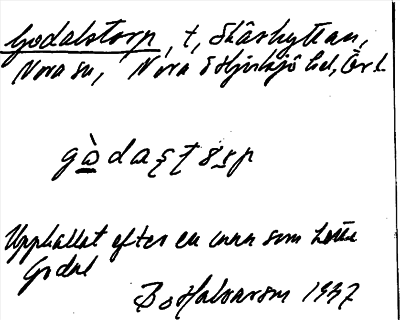 Godalstorp, t, Skärhyttan,
Nora sn, Nora o Hjulsjö bd, Ör. l.
gòdaʂʈɔrp
Uppkallat efter en man som hette
Godal
Bo Halvarson 1937